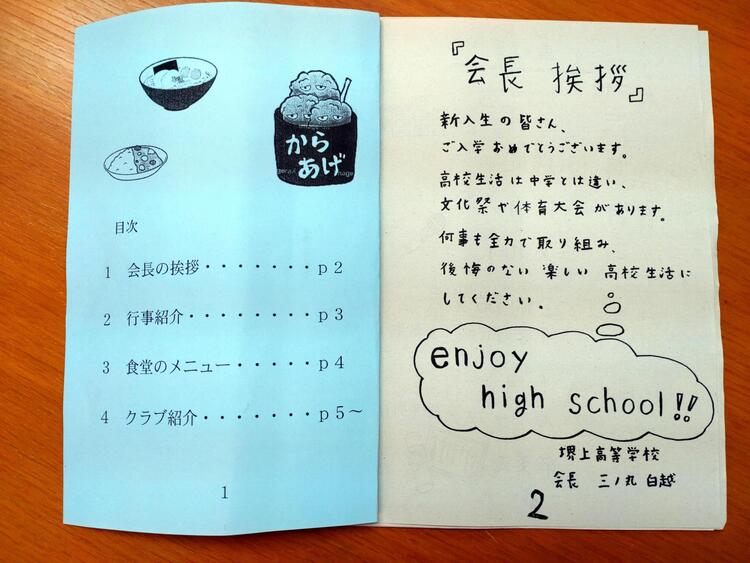 からあげ
目次
1 会長の挨拶・・・・・・・p2
2 行事紹介・・・・・・・・p3
3 食堂のメニュー・・・・・p4
4 クラブ紹介・・・・・・・p5~
1
『会長 挨拶』
新入生の皆さん、
ご入学おめでとうございます。
高校生活は中学とは違い、
文化祭や体育大会があります。
何事も全力で取り組み、
後悔のない 楽しい 高校生活に
してください。
enjoy
high school!!
堺上高等学校
会長 三ノ丸 白越
2